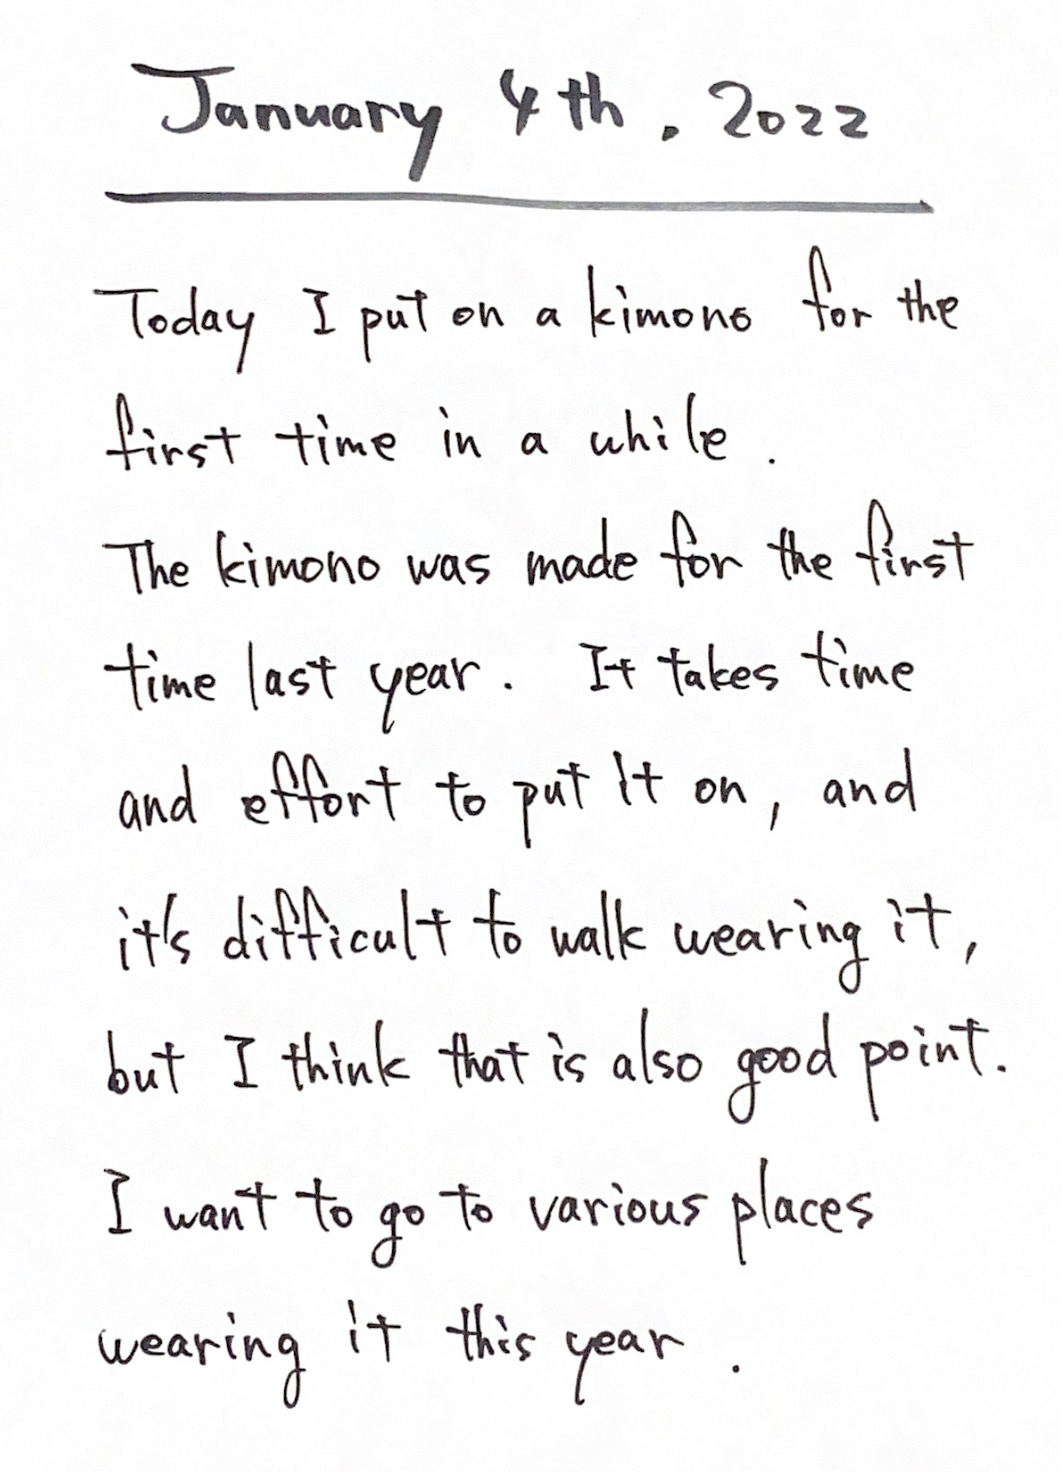 January 4th, 2022
Today I put on a kimono for the
first time in a while.
The kimono was made for the first
time last year. It takes time
and effort to put it on, and
it's difficult to walk wearing it,
but I think that is also good point.
I want to go to various places
wearing it this year.